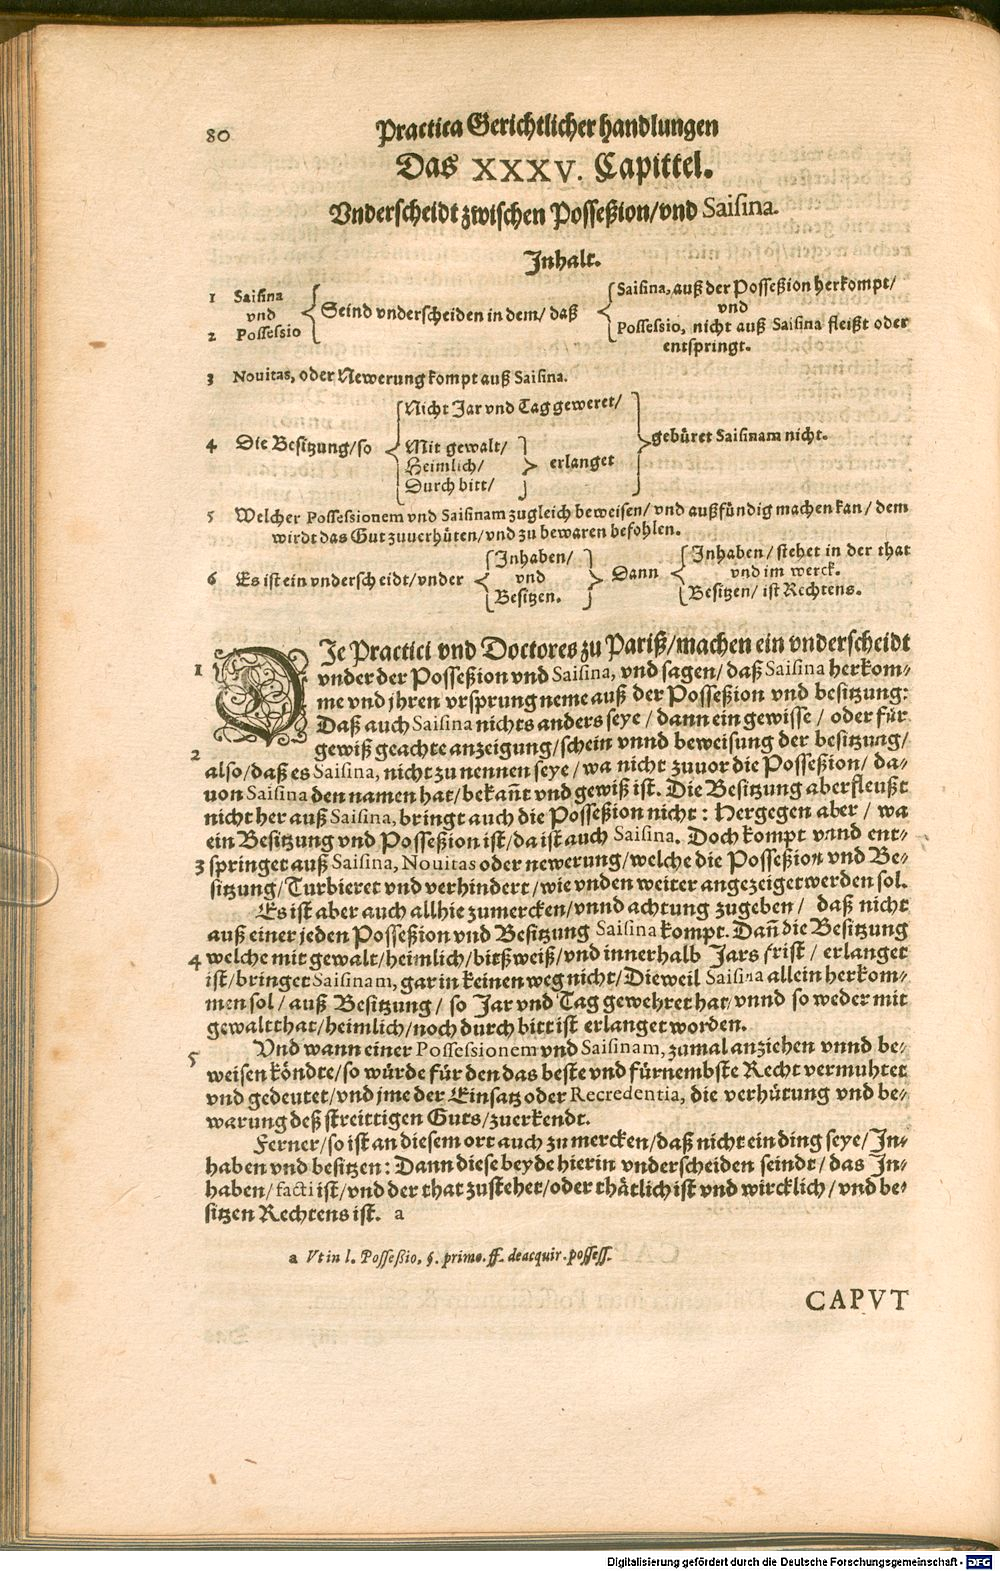 80
Practica Gerichtlicher handlungen
Das XXXV. Capittel.
Vnderscheidt zwischen Posseßion/vnd Saisina.
Inhalt.
1 Saisina
vnd
2 Possessio
Seind vnderscheiden in dem/ daß
Saisina, auß der Posseßion herkompt/
vnd
Possessio, nicht auß Saisina fleißt oder
entspringt.
3 Nouitas, oder Newerung kompt auß Saisina.
4 Die Besitzung/so
Nicht Jar vnd Tag geweret/
Mit gewalt/
Heimlich/
Durch bitt/
erlanget
gebüret Saisinam nicht.
5 Welcher Possessionem vnd Saisinam zugleich beweisen/vnd außfündig machen kan/ dem
wirdt das Gut zuuerhüten/vnd zu bewaren befohlen.
6 Es ist ein vnderscheidt/vnder
Inhaben/
vnd
Besitzen.
Dann
Inhaben/ stehet in der that
vnd im werck.
Besitzen/ ist Rechtens.
1 DIe Practici vnd Doctores zu Pariß/machen ein vnderscheidt
vnder der Posseßion vnd Saisina, vnd sagen/ daß Saisina herkom-
me vnd jhren vrsprung neme auß der Posseßion vnd besitzung:
Daß auch Saisina nichts anders seye / dann ein gewisse / oder für
gewiß geachte anzeigung/schein vnnd beweisung der besitzung/
2 also/daß es Saisina, nicht zu nennen seye/ wa nicht zuuor die Posseßion/ da-
uon Saisina den namen hat/bekañt vnd gewiß ist. Die Besitzung aber fleußt
nicht her auß Saisina, bringt auch die Posseßion nicht: Hergegen aber / wa
ein Besitzung vnd Posseßion ist/da ist auch Saisina. Doch kompt vnnd ent-
3 springet auß Saisina, Nouitas oder newerung/welche die Posseßion vnd Be-
sitzung/Turbieret vnd verhindert/wie vnden weiter angezeiget werden sol.
Es ist aber auch allhie zumercken/vnnd achtung zugeben / daß nicht
auß einer jeden Posseßion vnd Besitzung Saisina kompt. Dañ die Besitzung
4 welche mit gewalt/heimlich/bittßweiß/vnd innerhalb Jars frist / erlanget
ist/bringet Saisinam, gar in keinen weg nicht/Dieweil Saisina allein herkom-
men sol / auß Besitzung / so Jar vnd Tag gewehret hat/vnnd so weder mit
gewaltthat/heimlich/noch durch bitt ist erlanget worden.
5 Vnd wann einer Possessionem vnd Saisinam, zumal anziehen vnnd be-
weisen köndte/so würde für den das beste vnd fürnembste Recht vermuhtet
vnd gedeutet/vnd jme der Einsatz oder Recredentia, die verhütung vnd be-
warung deß streittigen Guts/zuerkendt.
Ferner/so ist an diesem ort auch zu mercken/daß nicht ein ding seye/In-
haben vnd besitzen: Dann diese beyde hierin vnderscheiden seindt/das In-
haben/facti ist/vnd der that zustehet/oder thätlich ist vnd wircklich/vnd be-
sitzen Rechtens ist. a
a Vt in l. Posseßio, §. primo. ff. de acquir. possess.
CAPVT
Digitalisierung gefördert durch die Deutsche Forschungsgemeinschaft - DFG